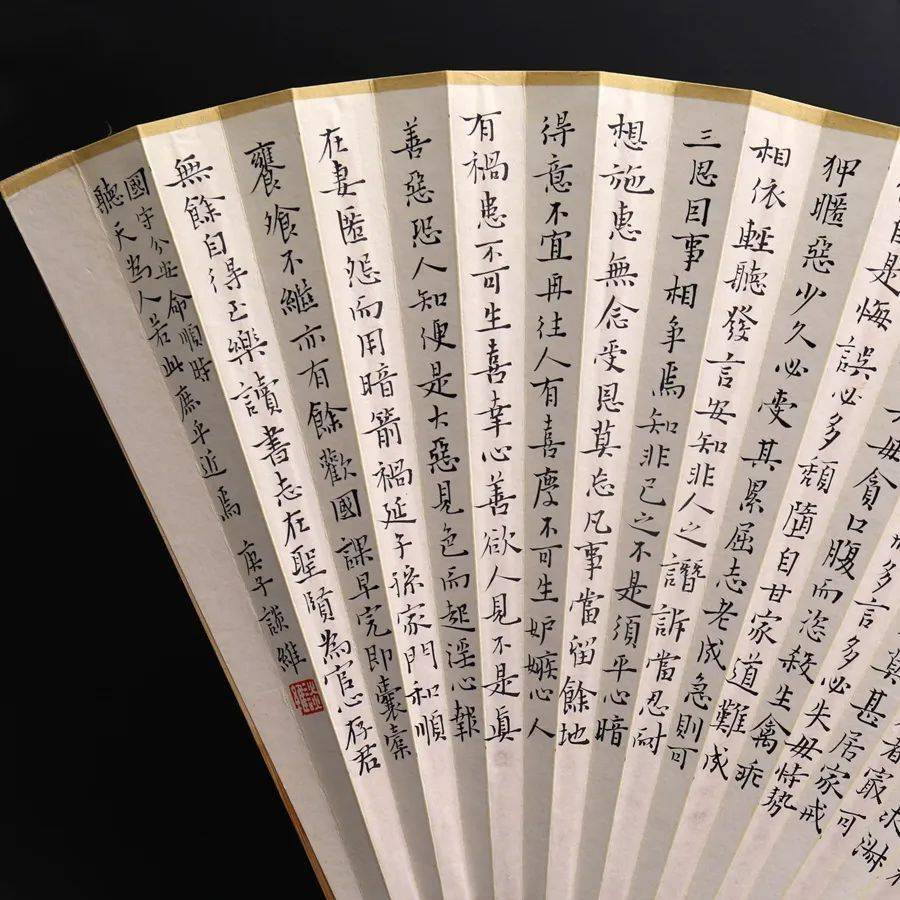 者最可
莫甚居家戒
多言多必失毋恃勢
毋貪口腹而恣殺生禽乖
自是悔誤必多頹墮自甘家道難成
狎暱惡少久必受其累屈志老成急則可
相依輕聽發言安知非人之譖訴當忍耐
三思因事相爭焉知非己之不是須平心暗
想施惠無念受恩莫忘凡事當留餘地
得意不宜再往人有喜慶不可生妒嫉心人
有禍患不可生喜幸心善欲人見不是真
善惡恐人知便是大惡見色而起淫心報
在妻匿怨而用暗箭禍延子孫家門和順
饔飧不繼亦有餘歡國課早完即囊橐
無餘自得至樂讀書志在聖賢為官心存君
國守分安命順時
聽天為人若此庶乎近焉 庚子談維